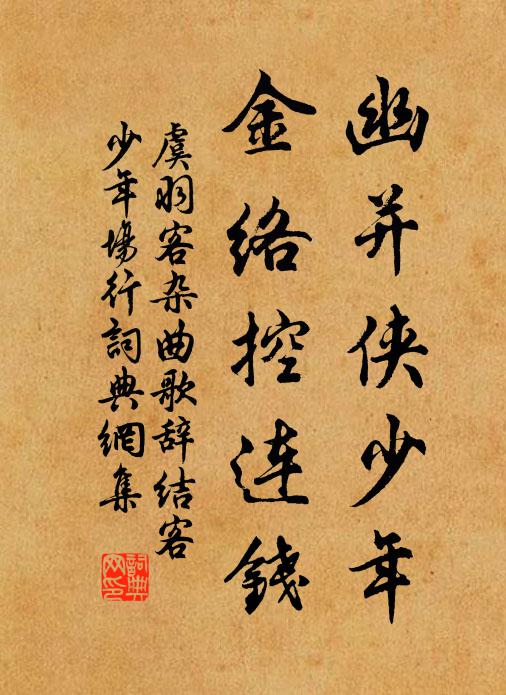 幽并侠少年
金络控连钱
虞羽客杂曲歌辞结客
少年场行词典网集
词典网印